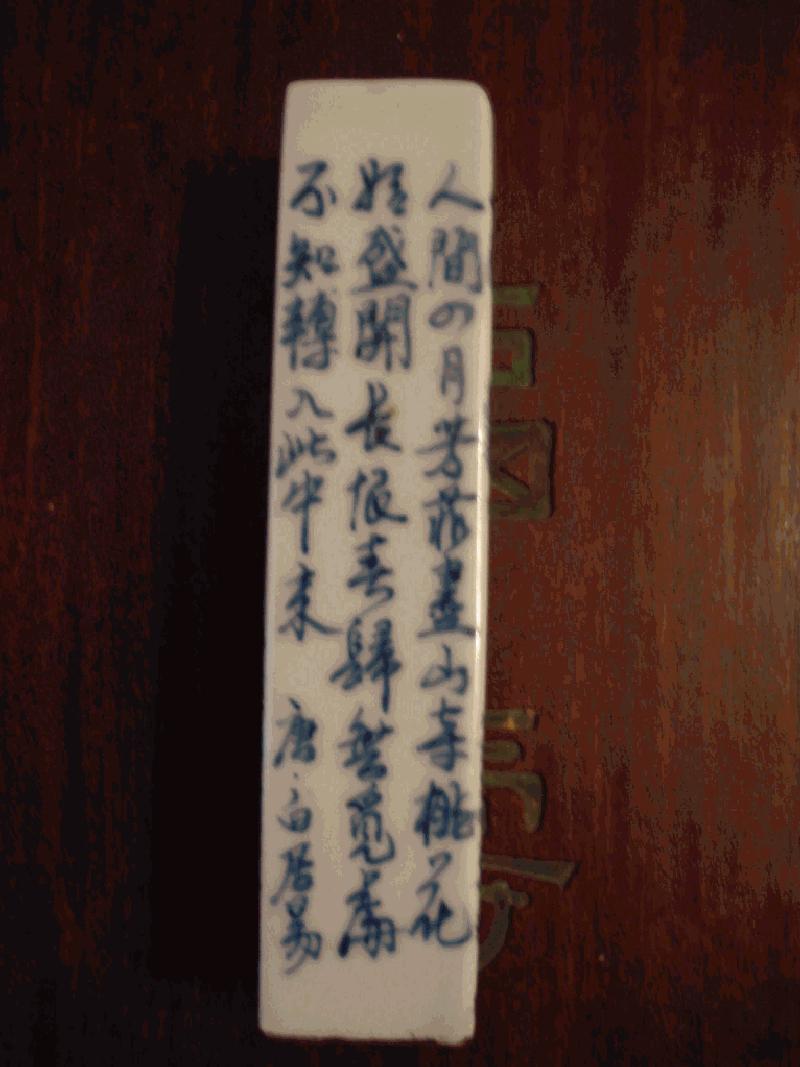 人間四月芳菲盡山寺桃花
始盛開長恨春歸無覓處
不知轉入此中來 唐·白居易